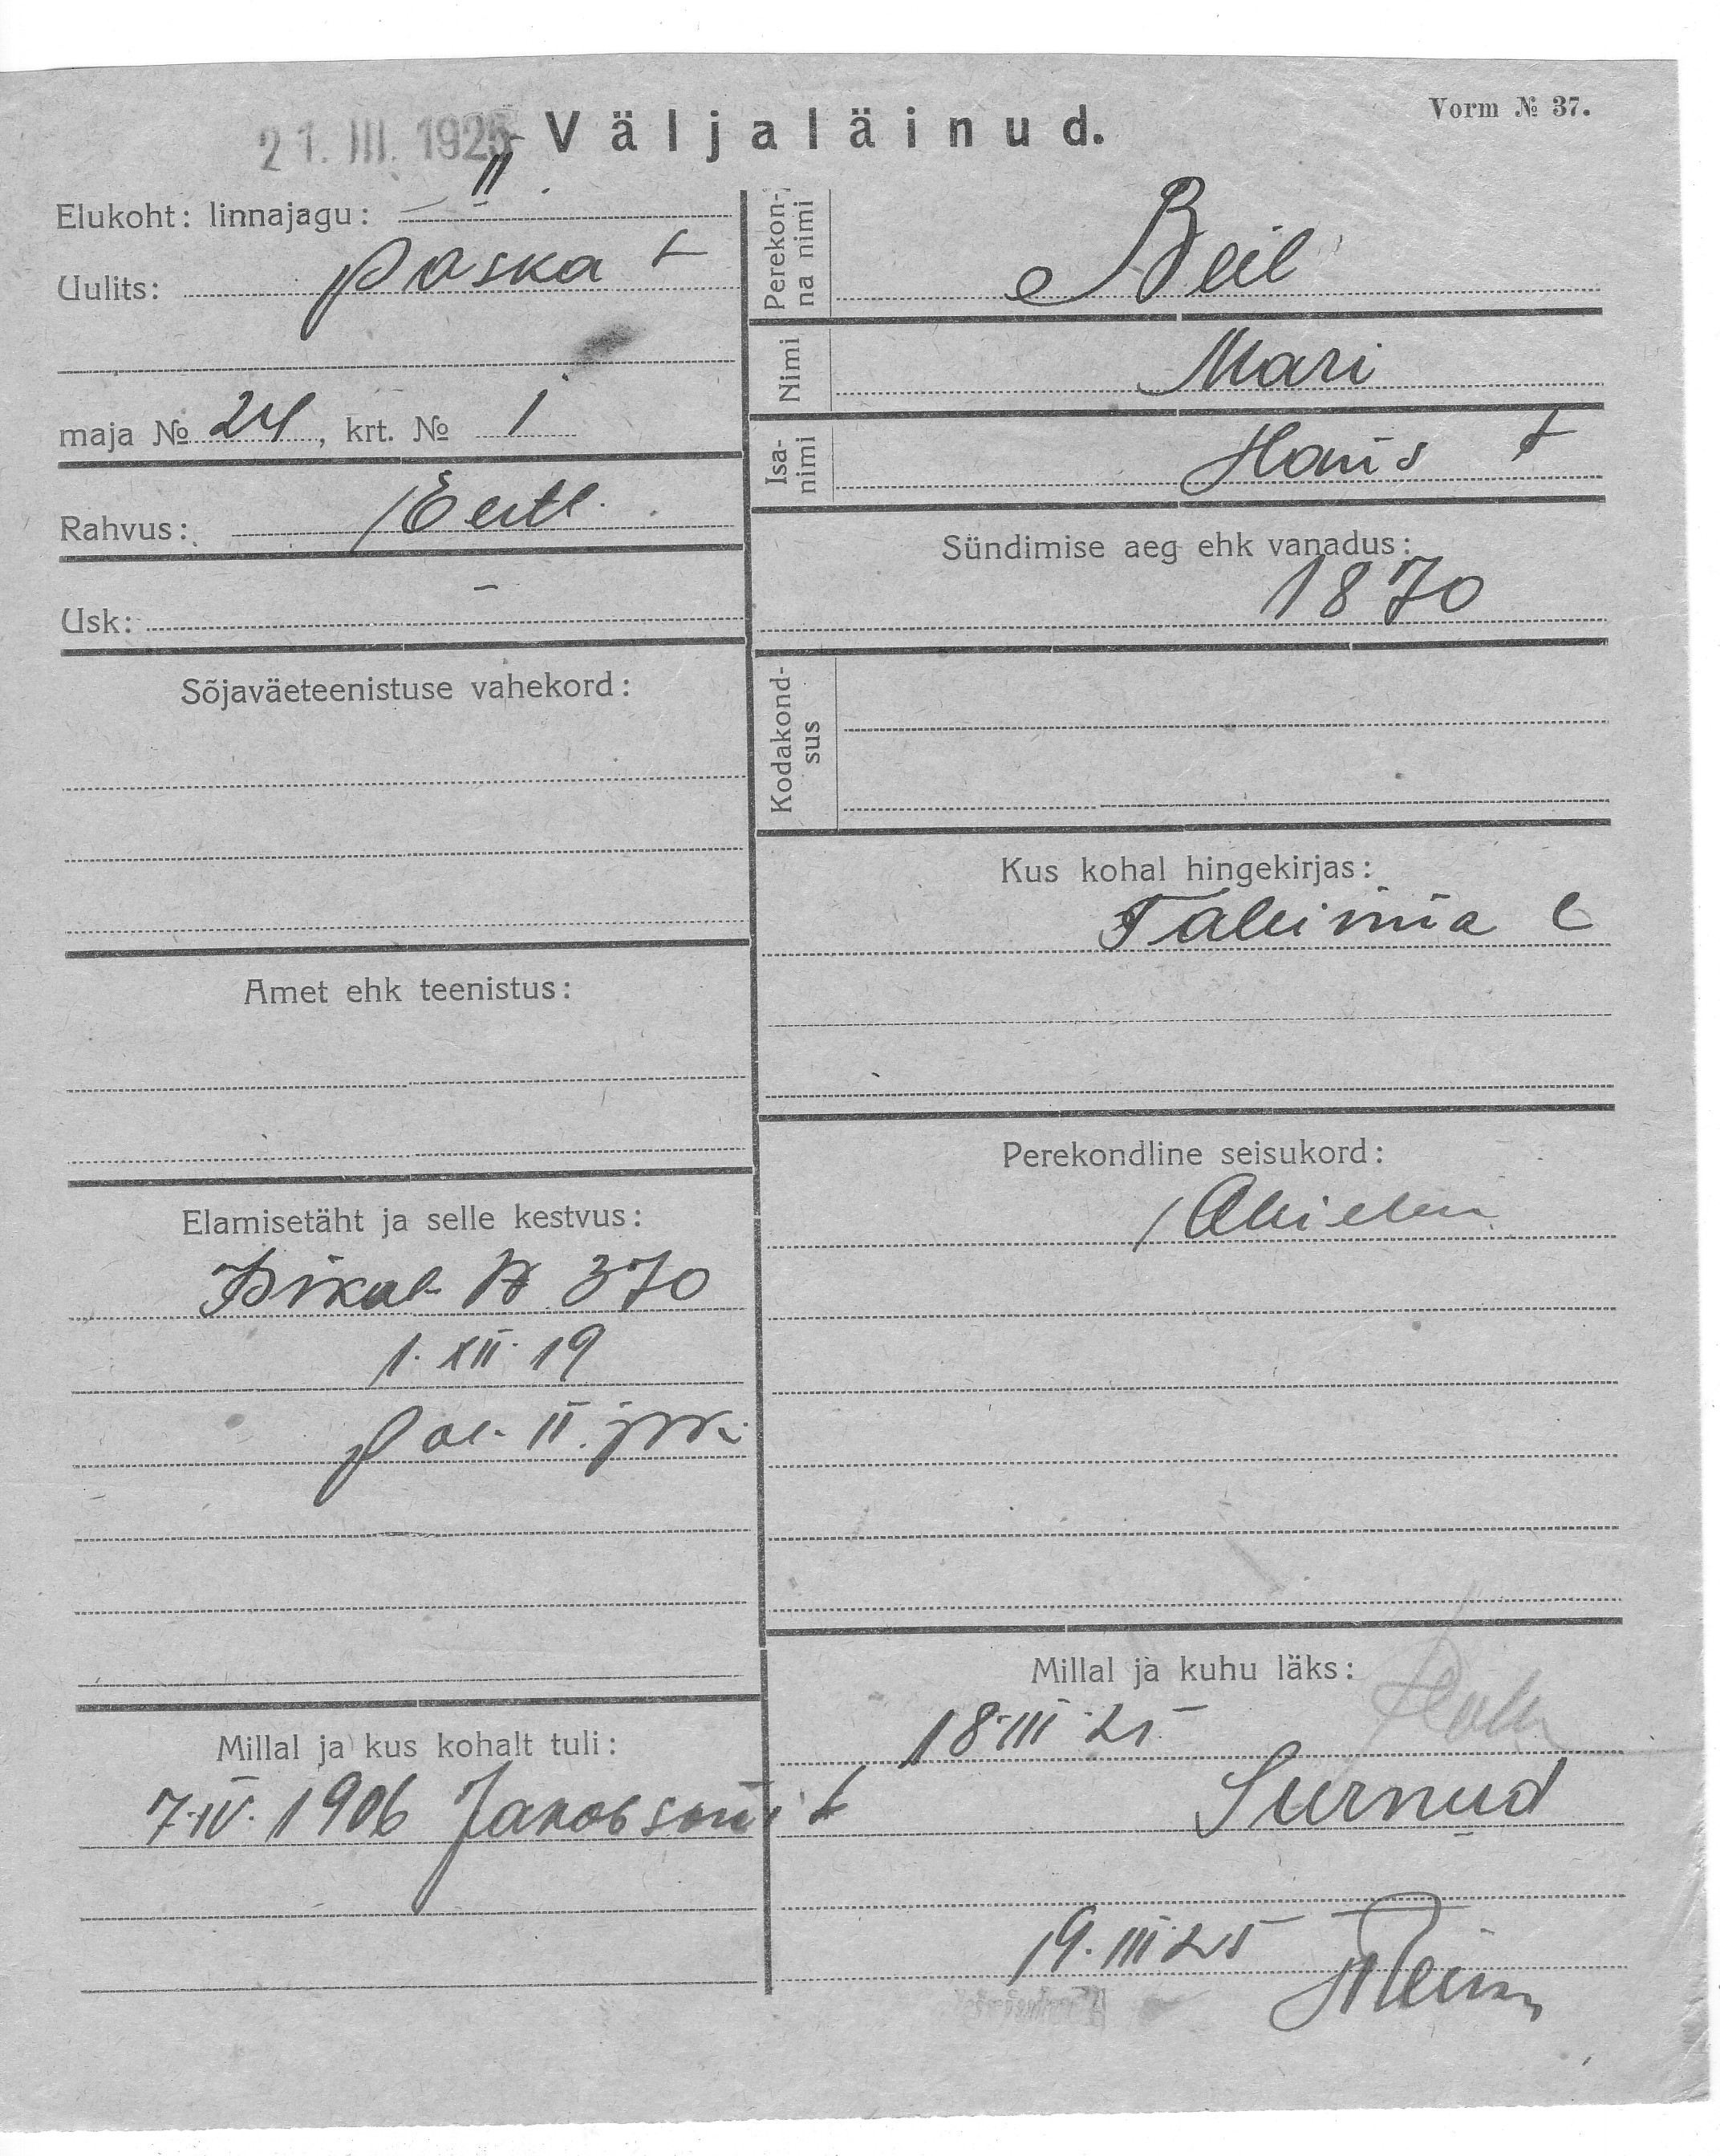 Vorm № 37.
21. III. 1925
Väljaläinud.
Elukoht: linnajagu: II
Uulits: Poska t
maja № 24, krt. № 1
Rahvus: Eestl.
Usk: –
Sõjaväeteenistuse vahekord:
Amet ehk teenistus:
Elamisetäht ja selle kestvus:
Isikut. № 370
1. XII. 19
Pol. II. jsk.
Millal ja kus kohalt tuli:
7. IV. 1906 Jakobsoni t
Perekonna nimi Beil
Nimi Mari
Isanimi Hans t
Sündimise aeg ehk vanadus:
1870
Kodakondsus
Kus kohal hingekirjas:
Tallinna l
Perekondline seisukord:
Millal ja kuhu läks:
18. III. 25
Surnud
19. III 25